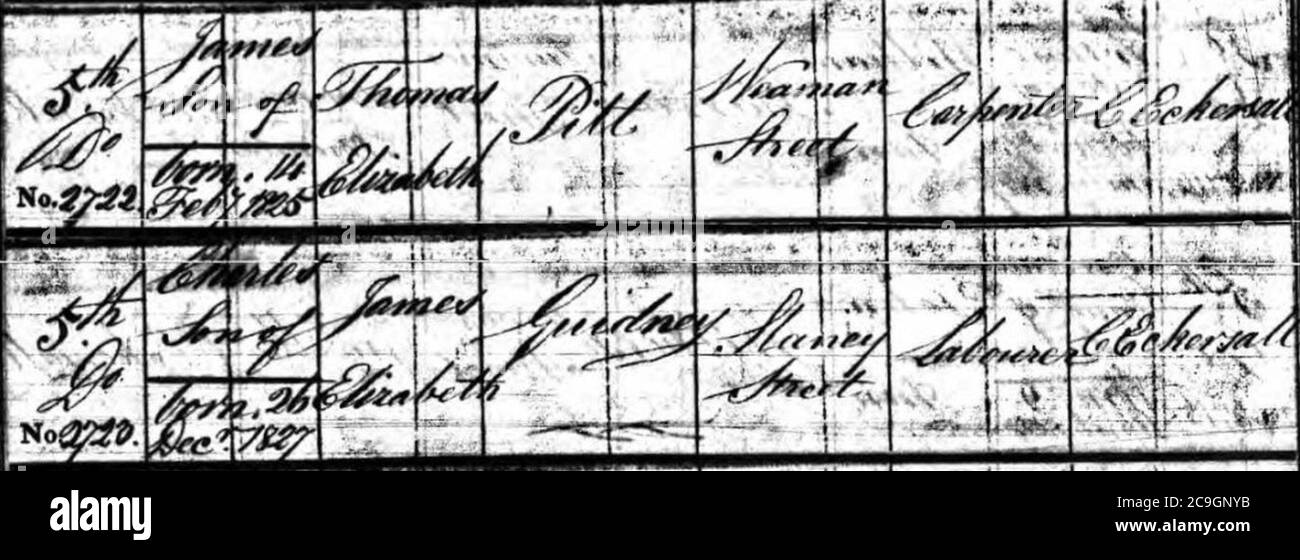 5th
Do
No. 2722.
James
Son of
born. 14
Feby 1825
Thomas
Elizabeth
Pitt
Weaman
Street
Carpenter
C Eckersall
5.th
Do
No. 2723.
Charles
Son of
born. 26
Decr 1827
James
Elizabeth
Guidney
Street
Labourer
C Eckersall
alamy
Image ID: 2C9GNYB
www.alamy.com